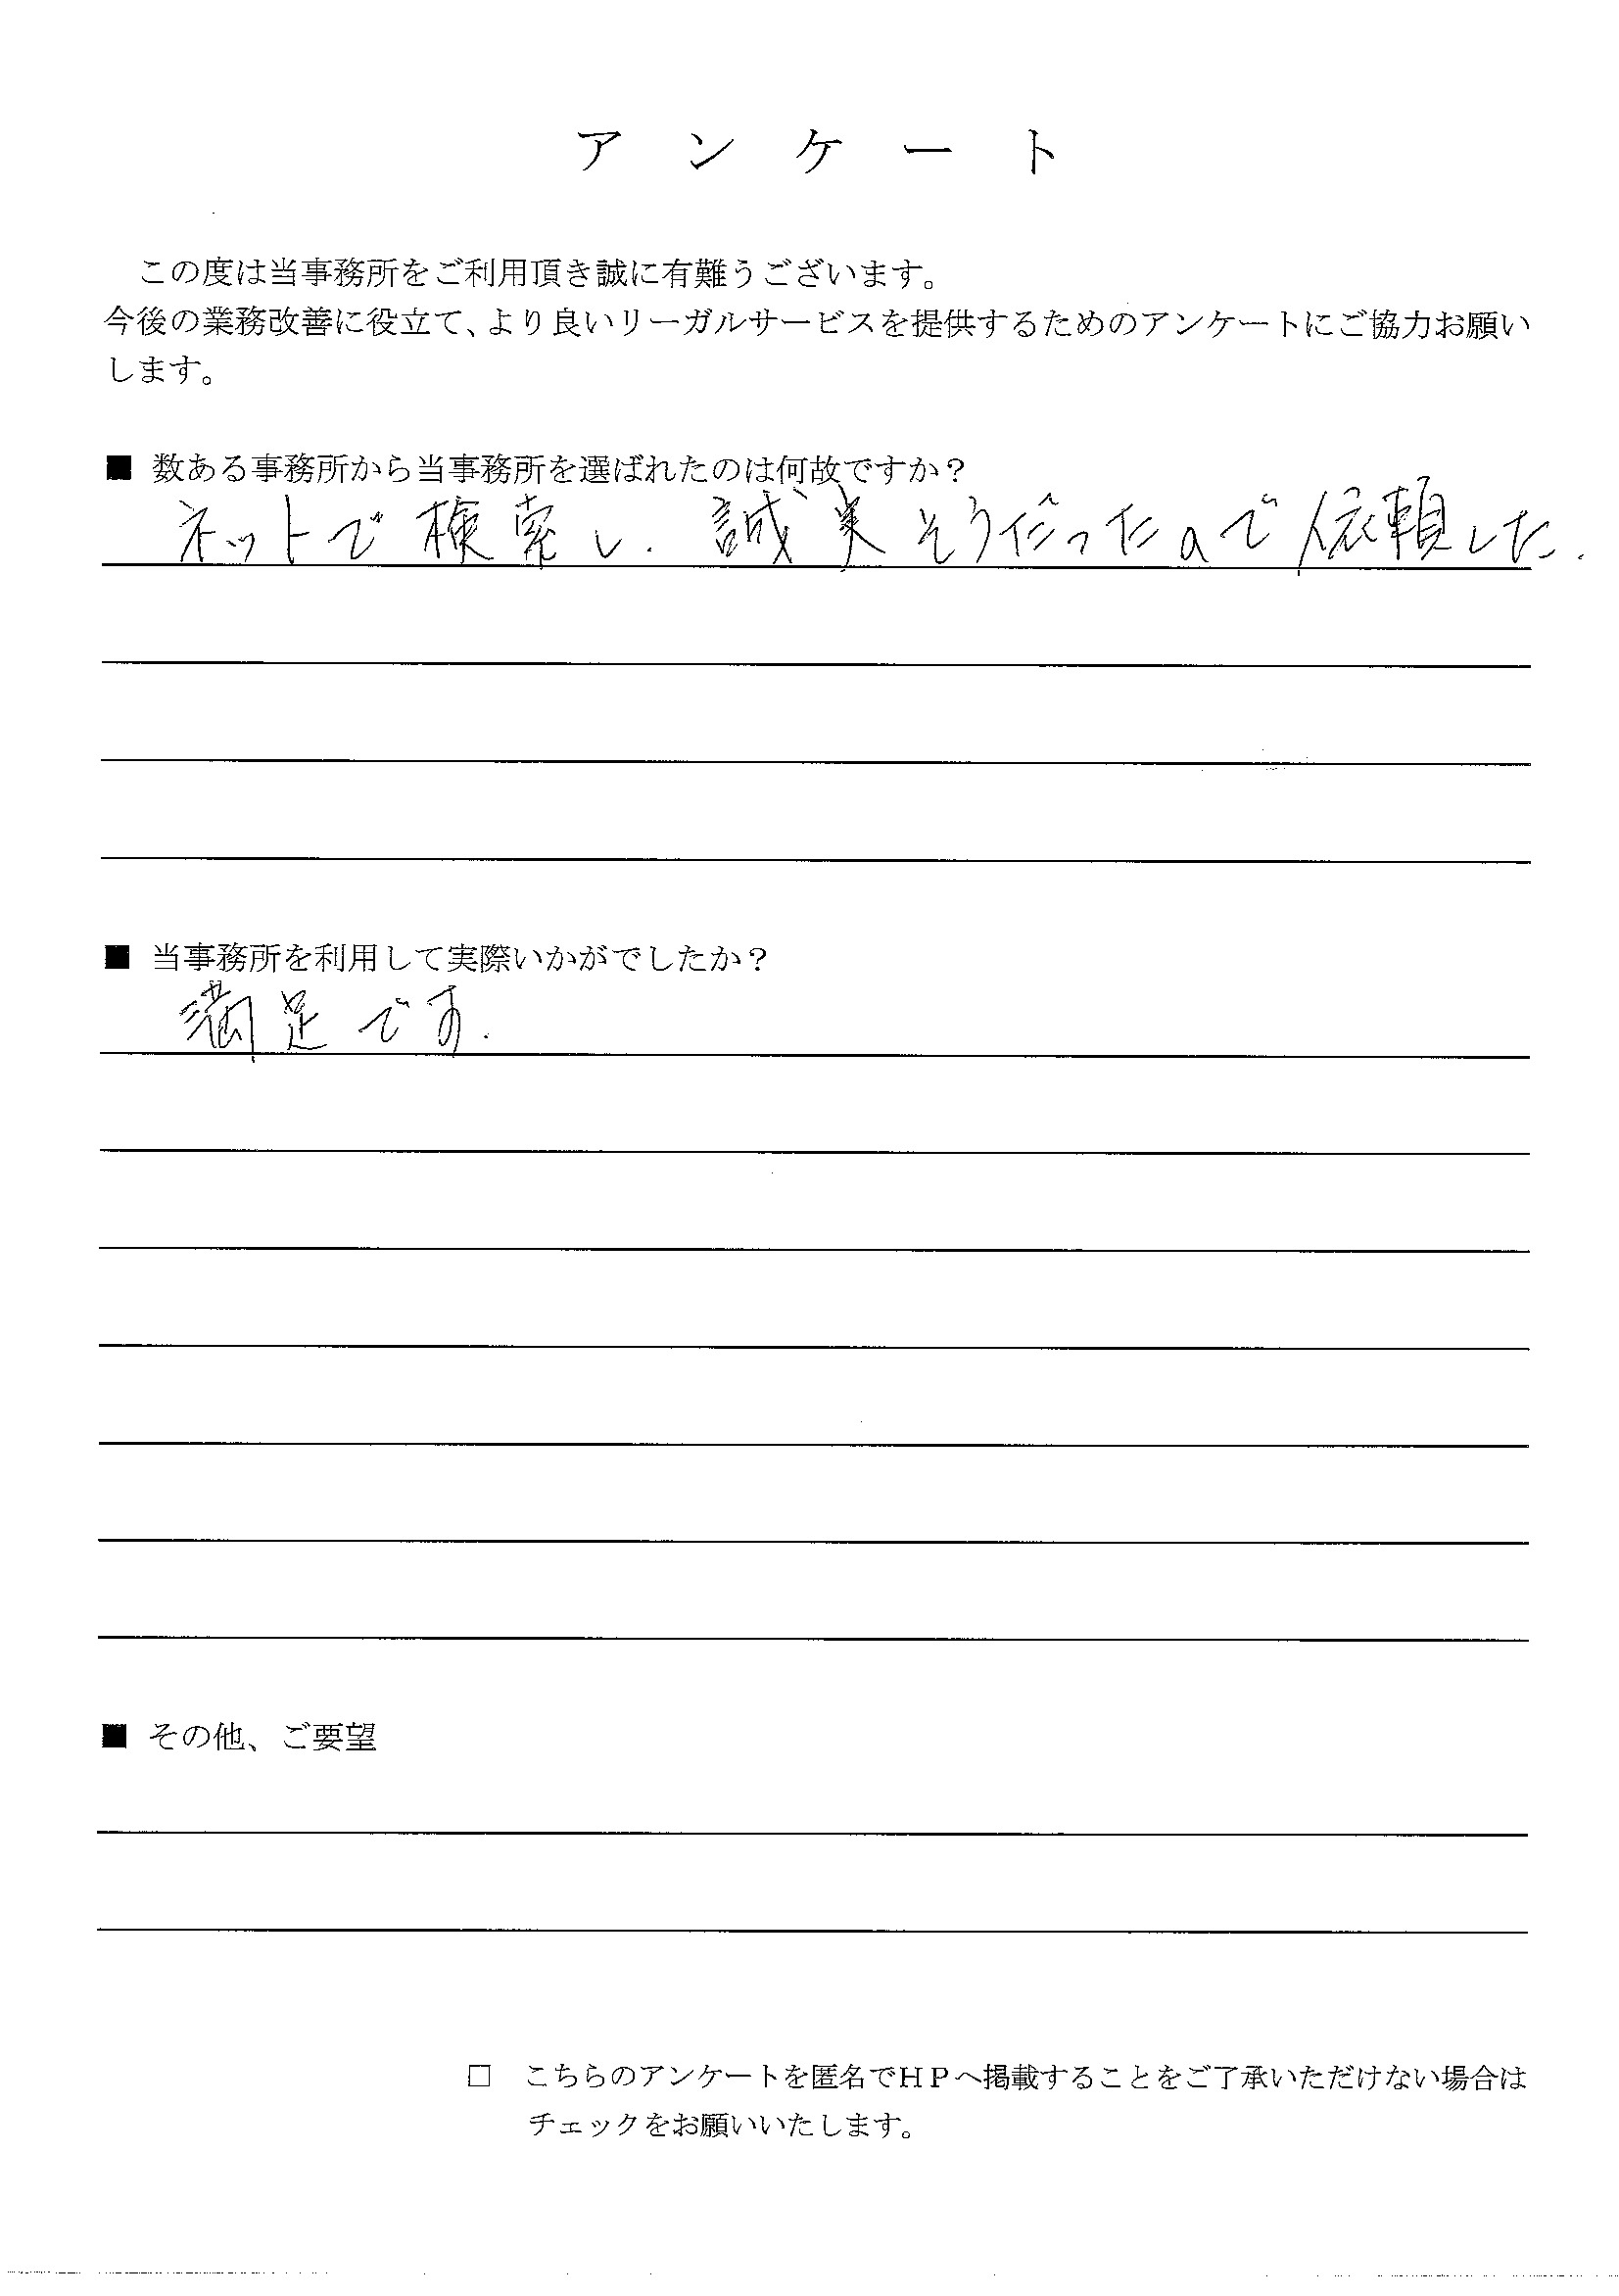 アンケート
この度は当事務所をご利用頂き誠に有難うございます。
今後の業務改善に役立て、より良いリーガルサービスを提供するためのアンケートにご協力お願い
します。
■ 数ある事務所から当事務所を選ばれたのは何故ですか？
ネットで検索し、誠実そうだったので依頼した.
■ 当事務所を利用して実際いかがでしたか？
満足です.
■ その他、ご要望
□ こちらのアンケートを匿名でＨＰへ掲載することをご了承いただけない場合は
チェックをお願いいたします。